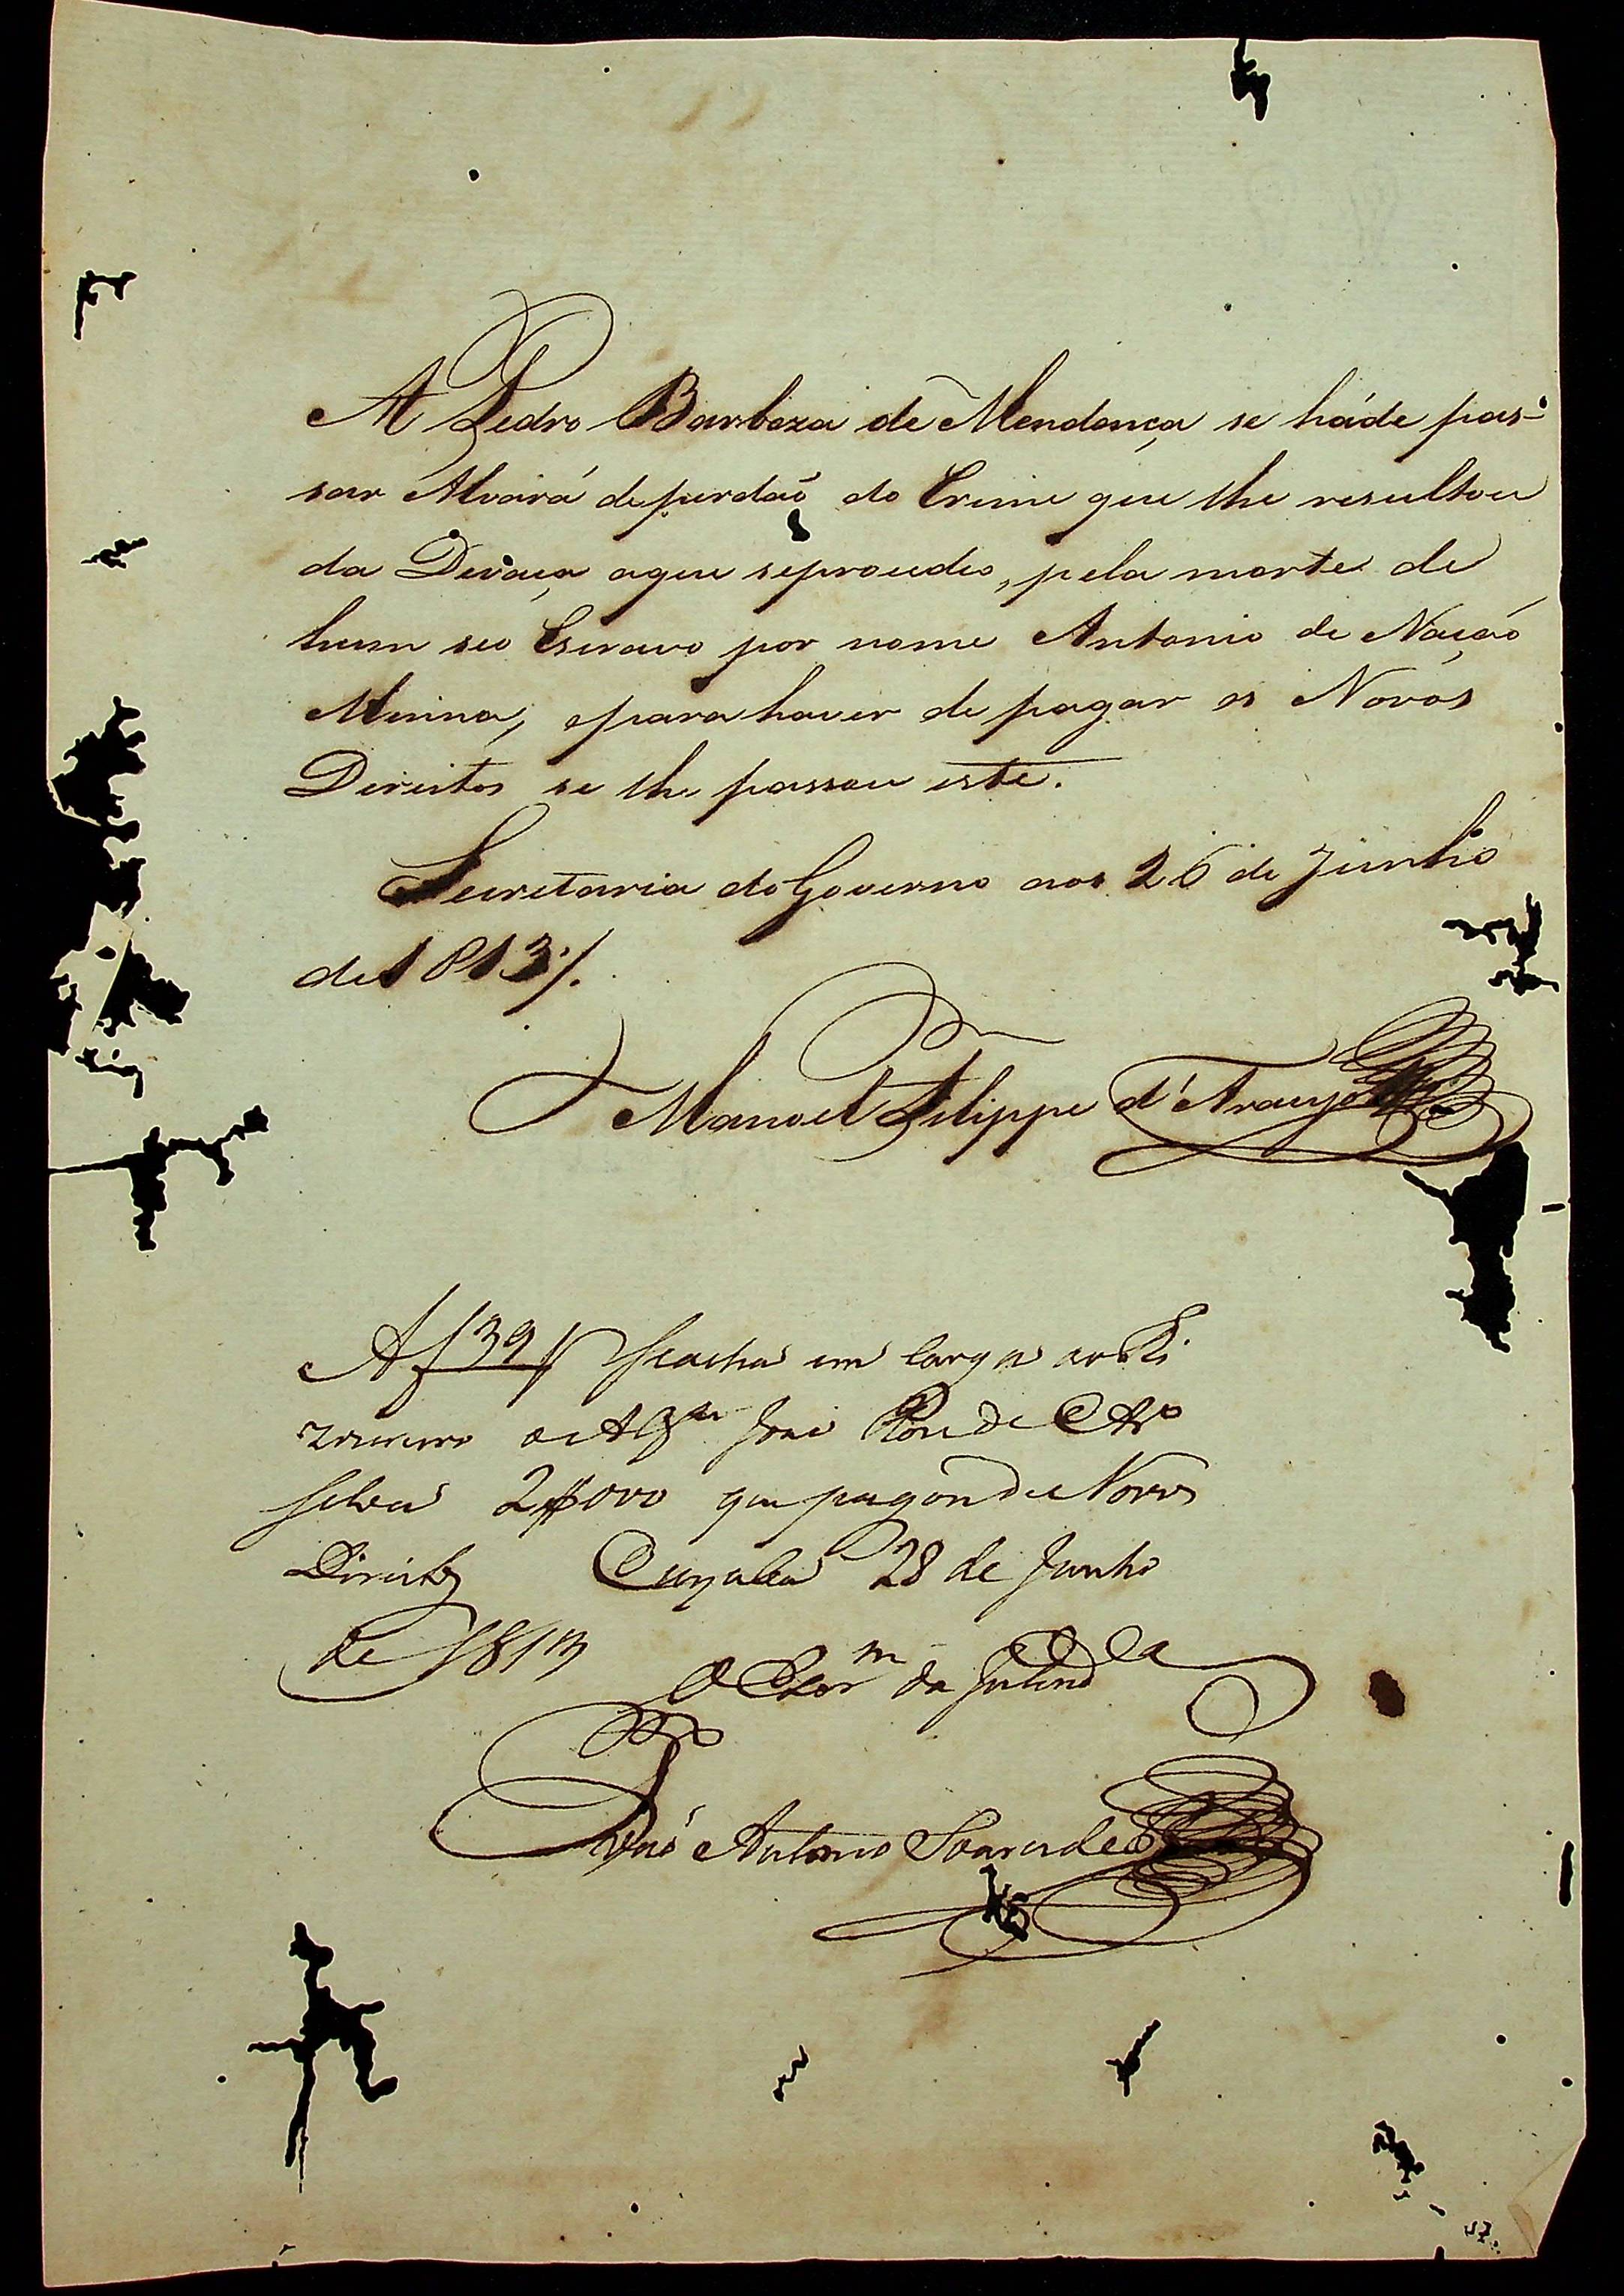 A Pedro Barboza de Mendonça se háde pas-
sar Alvará de perdaõ do Crime que lhe resultou
da Devaça aque seprocedeo, pela morte de
hum seo Escravo por nome Antonio de Nação
Minna, epara haver de pagar os Novos
Direitos se lhe passou este.
Secretaria do Governo aos 26 de Junho
de 1813./.
Manoel Filippe d'Araujo
A f 39 V Seacha em carga ao
José
Silva 2$000 que pagou de Novos
Direitos Cuyaba 28 de Junho
de 1813
O da
José Antonio Soares de